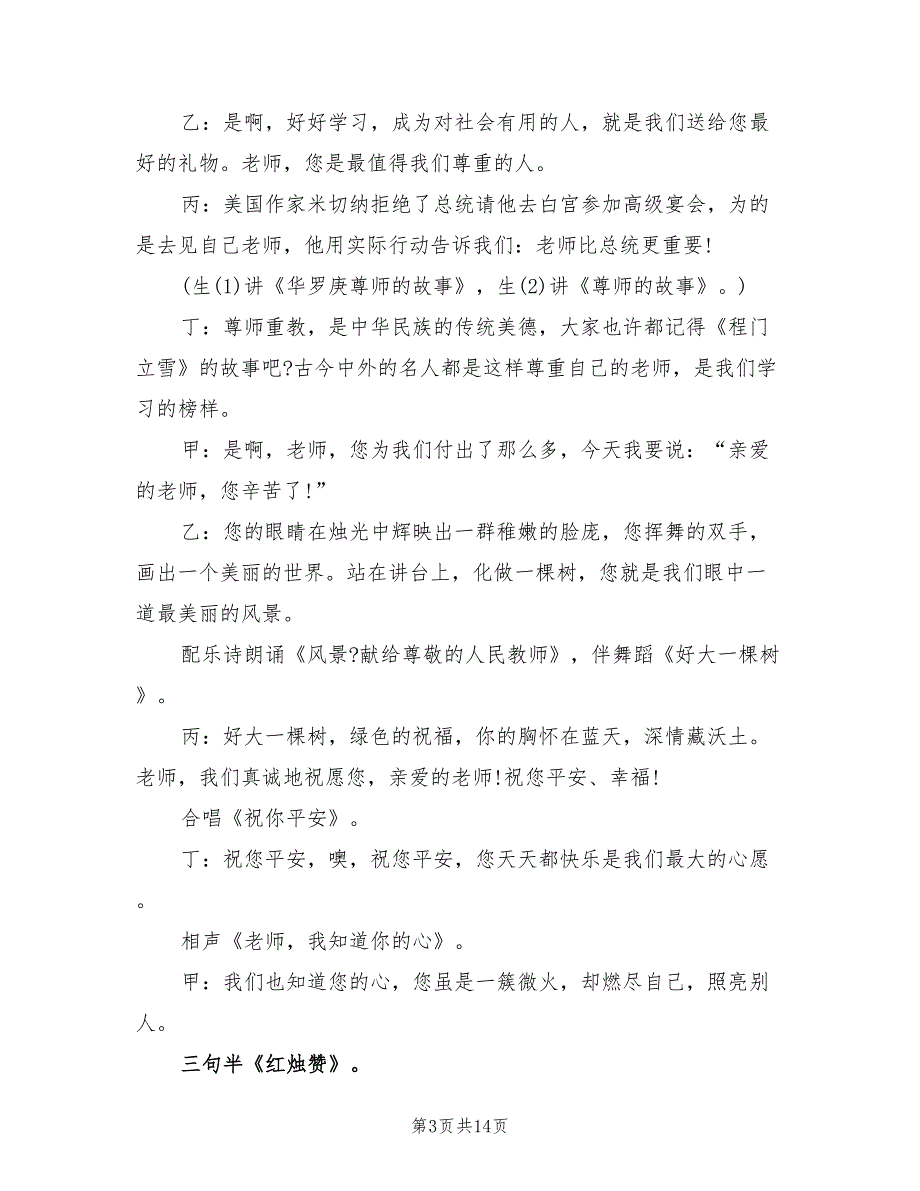 乙：是啊，好好学习，成为对社会有用的人，就是我们送给您最
好的礼物。老师，您是最值得我们尊重的人。
丙：美国作家米切纳拒绝了总统请他去白宫参加高级宴会，为的
是去见自己老师，他用实际行动告诉我们：老师比总统更重要!
(生(1)讲《华罗庚尊师的故事》，生(2)讲《尊师的故事》。)
丁：尊师重教，是中华民族的传统美德，大家也许都记得《程门
立雪》的故事吧?古今中外的名人都是这样尊重自己的老师，是我们学
习的榜样。
甲：是啊，老师，您为我们付出了那么多，今天我要说：“亲爱
的老师，您辛苦了!”
乙：您的眼睛在烛光中辉映出一群稚嫩的脸庞，您挥舞的双手，
画出一个美丽的世界。站在讲台上，化做一棵树，您就是我们眼中一
道最美丽的风景。
配乐诗朗诵《风景?献给尊敬的人民教师》，伴舞蹈《好大一棵树
》。
丙：好大一棵树，绿色的祝福，你的胸怀在蓝天，深情藏沃土。
老师，我们真诚地祝愿您，亲爱的老师!祝您平安、幸福!
合唱《祝你平安》。
丁：祝您平安，噢，祝您平安，您天天都快乐是我们最大的心愿
。
相声《老师，我知道你的心》。
甲：我们也知道您的心，您虽是一簇微火，却燃尽自己，照亮别
人。
三句半《红烛赞》。
第3页共14页